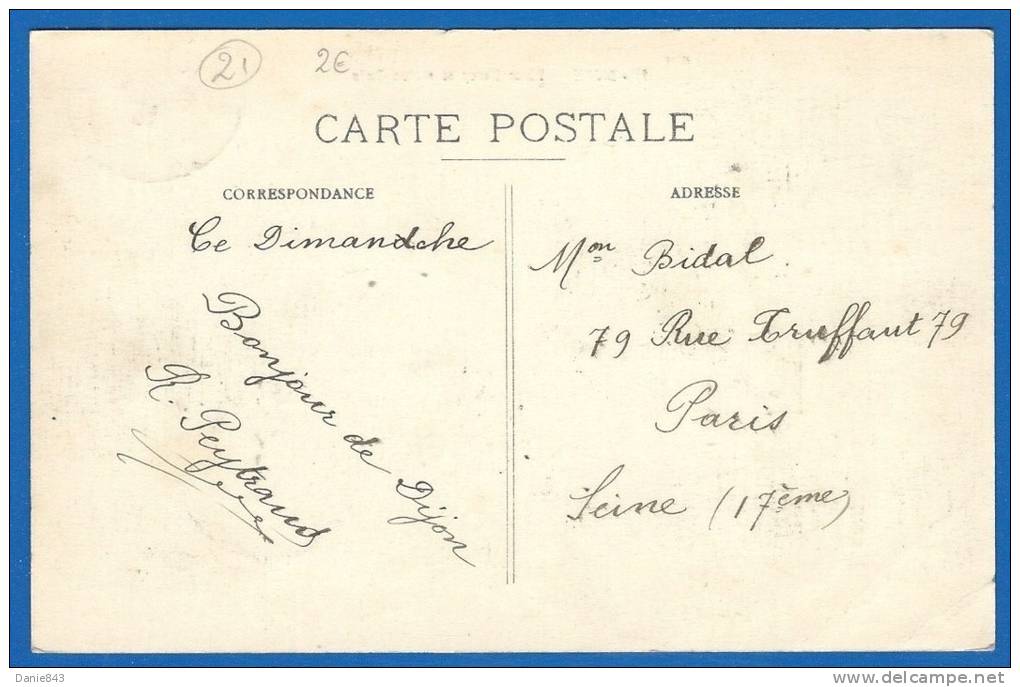 21
2€
CARTE POSTALE
CORRESPONDANCE
Ce Dimandche
Bonjour de Dijon
R. Peytraud
ADRESSE
Mon Bidal
79 Rue Truffaut 79
Paris
Seine (17ème)
Danie843
www.delcampe.net